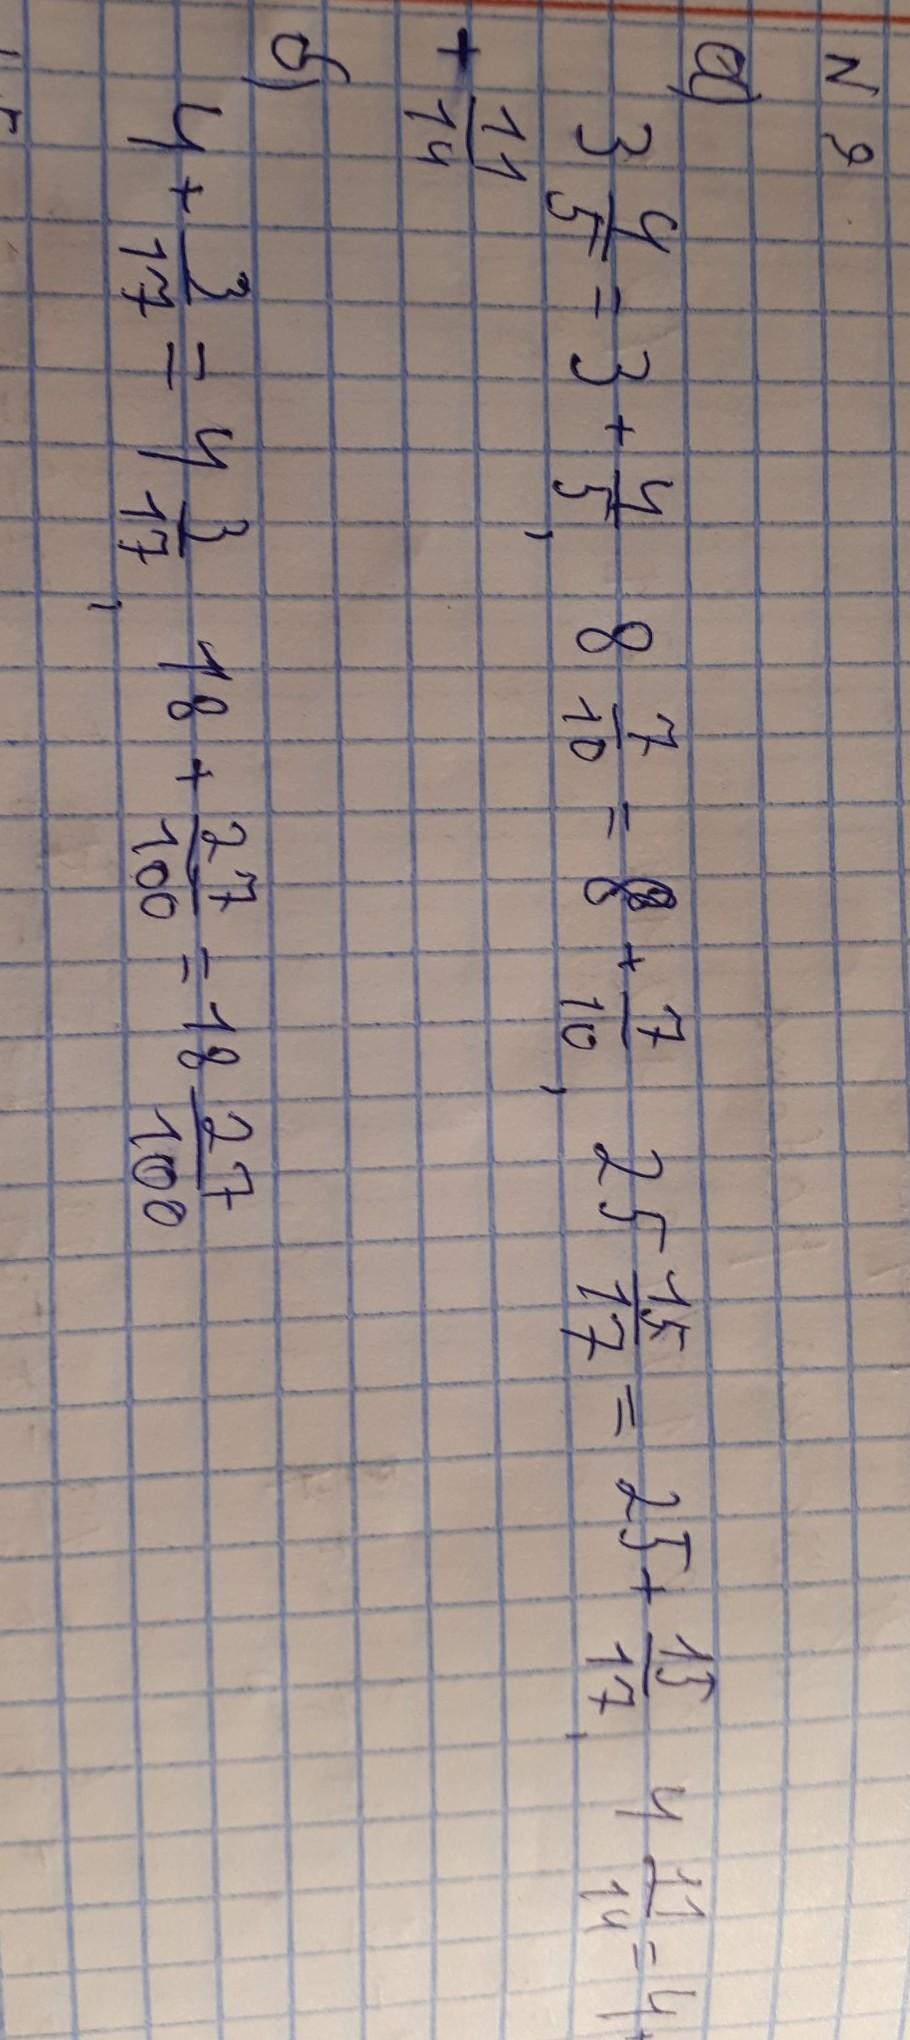 N 9
а)
3 4/5 = 3 + 4/5, 8 7/10 = 8 + 7/10, 25 15/17 = 25 + 15/17, 4 11/14 = 4 +
+ 11/14
б)
4 + 3/17 = 4 3/17, 18 + 27/100 = 18 27/100